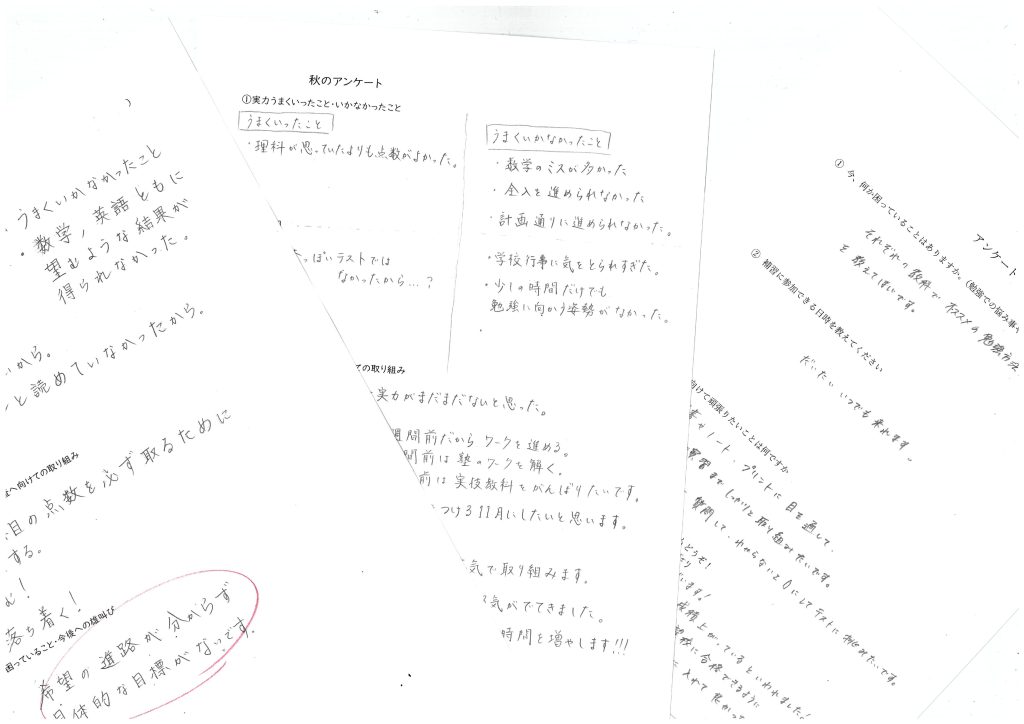 うまくいかなかったこと
・数学，英語ともに
望むような結果が
得られなかった。
から。
と読めていなかったから。
へ向けての取り組み
目の点数を必ず取るために
する。
落ち着く！
困っていること・今後への雄叫び
希望の進路が分からず
具体的な目標がないです。
秋のアンケート
①実力うまくいったこと・いかなかったこと
うまくいったこと
・理科が思っていたよりも点数がよかった。
っぽいテストでは
なかったから…？
うまくいかなかったこと
・数学のミスが多かった
・全入を進められなかった
・計画通りに進められなかった。
・学校行事に気をとられすぎた。
・少しの時間だけでも
勉強に向かう姿勢がなかった。
ての取り組み
・実力がまだまだないと思った。
週間前だから ワークを進める。
間前は 塾のワークを解く。
前は 実技教科をがんばりたいです。
つける11月にしたいと思います。
気で取り組みます。
気がでてきました。
時間を増やします!!!
アンケート
① 今、何か困っていることはありますか。（勉強での悩み事や
それぞれの教科で オススメの勉強方法
を教えてほしいです。
② 補習に参加できる日時を教えてください
だいたい いつでも来れます。
向けて頑張りたいことは何ですか
ノート・プリントに目を通して、
演習まで しっかりと取り組みたいです。
質問して、わからないところ0にしてテストに挑みたいです。
どうぞ！
います！
成績上がっているといわれました！
に合格できるように
入れて良かった